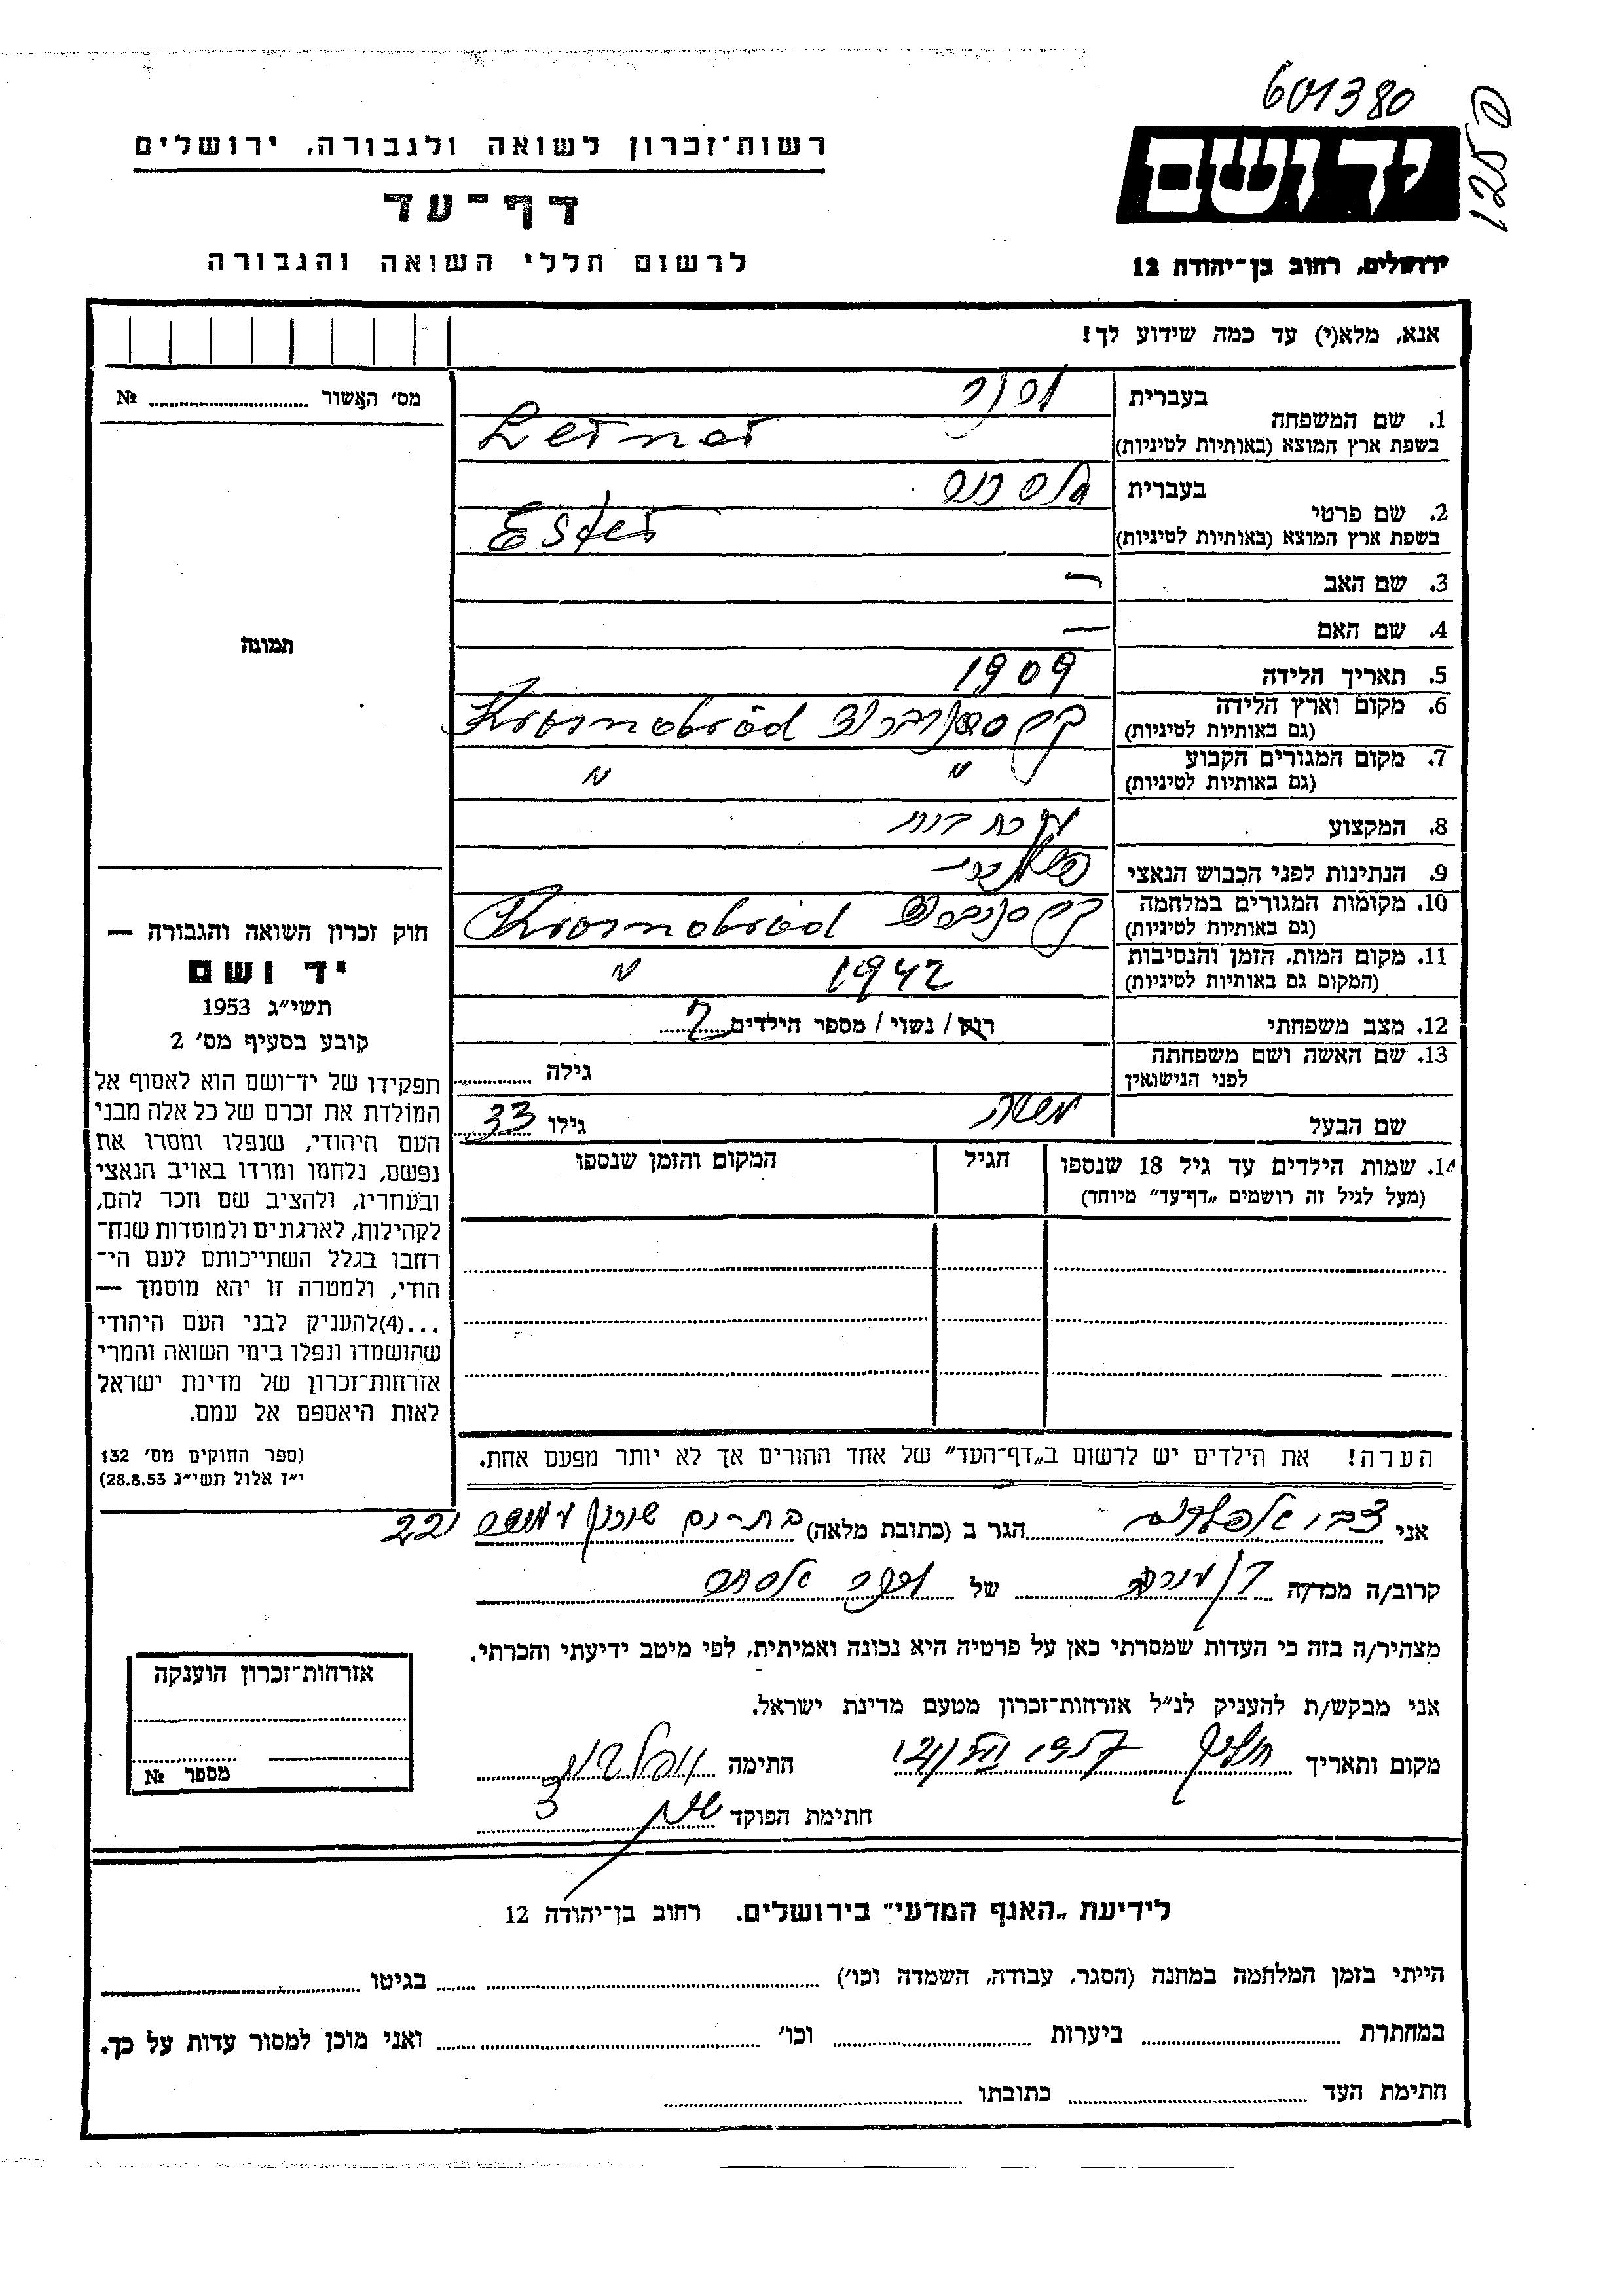 601380
125 ס
יד ושם
ירושלים, רחוב בן-יהודה 12
רשות-זכרון לשואה ולגבורה, ירושלים
דף-עד
לרשום חללי השואה והגבורה
אנא, מלא(י) עד כמה שידוע לך!
1. שם המשפחה
בעברית לרנר
בשפת ארץ המוצא (באותיות לטיניות) Lerner
2. שם פרטי
בעברית אסתר
בשפת ארץ המוצא (באותיות לטיניות) Ester
3. שם האב —
4. שם האם —
5. תאריך הלידה 1909
6. מקום וארץ הלידה
(גם באותיות לטיניות) Krasnobród
7. מקום המגורים הקבוע
(גם באותיות לטיניות) " "
8. המקצוע עקרת בית
9. הנתינות לפני הכבוש הנאצי פולנית
10. מקומות המגורים במלחמה
(גם באותיות לטיניות) Krasnobród
11. מקום המות, הזמן והנסיבות
(המקום גם באותיות לטיניות) 1942 "
12. מצב משפחתי רוק / נשוי / מספר הילדים 2
13. שם האשה ושם משפחתה
לפני הנישואין גילה
שם הבעל משה גילו 33
14. שמות הילדים עד גיל 18 שנספו הגיל המקום והזמן שנספו
(מעל לגיל זה רושמים „דף-עד" מיוחד)
הערה! את הילדים יש לרשום ב„דף-העד" של אחד ההורים אך לא יותר מפעם אחת.
מס' האשור №
תמונה
חוק זכרון השואה והגבורה —
יד ושם
תשי"ג 1953
קובע בסעיף מס' 2
תפקידו של יד-ושם הוא לאסוף אל
המולדת את זכרם של כל אלה מבני
העם היהודי, שנפלו ומסרו את
נפשם, נלחמו ומרדו באויב הנאצי
ובעוזריו, ולהציב שם וזכר להם,
לקהילות, לארגונים ולמוסדות שנח-
רחבו בגלל השתייכותם לעם הי-
הודי, ולמטרה זו יהא מוסמך —
...(4)להעניק לבני העם היהודי
שהושמדו ונפלו בימי השואה והמרי
אזרחות-זכרון של מדינת ישראל
לאות היאספם אל עמם.
(ספר החוקים מס' 132
י"ז אלול תשי"ג 28.8.53)
אני צבי הגר ב (כתובת מלאה) בת-ים שיכון 22
קרוב/ה מכר/ה של לרנר אסתר
מצהיר/ה בזה כי העדות שמסרתי כאן על פרטיה היא נכונה ואמיתית, לפי מיטב ידיעתי והכרתי.
אני מבקש/ת להעניק לנ"ל אזרחות-זכרון מטעם מדינת ישראל.
מקום ותאריך חתימה
חתימת הפוקד
אזרחות-זכרון הוענקה
מספר №
לידיעת „האגף המדעי" בירושלים. רחוב בן-יהודה 12
הייתי בזמן המלחמה במחנה (הסגר, עבודה, השמדה וכו') בגיטו
במחתרת ביערות וכו' ואני מוכן למסור עדות על כך.
חתימת העד כתובתו